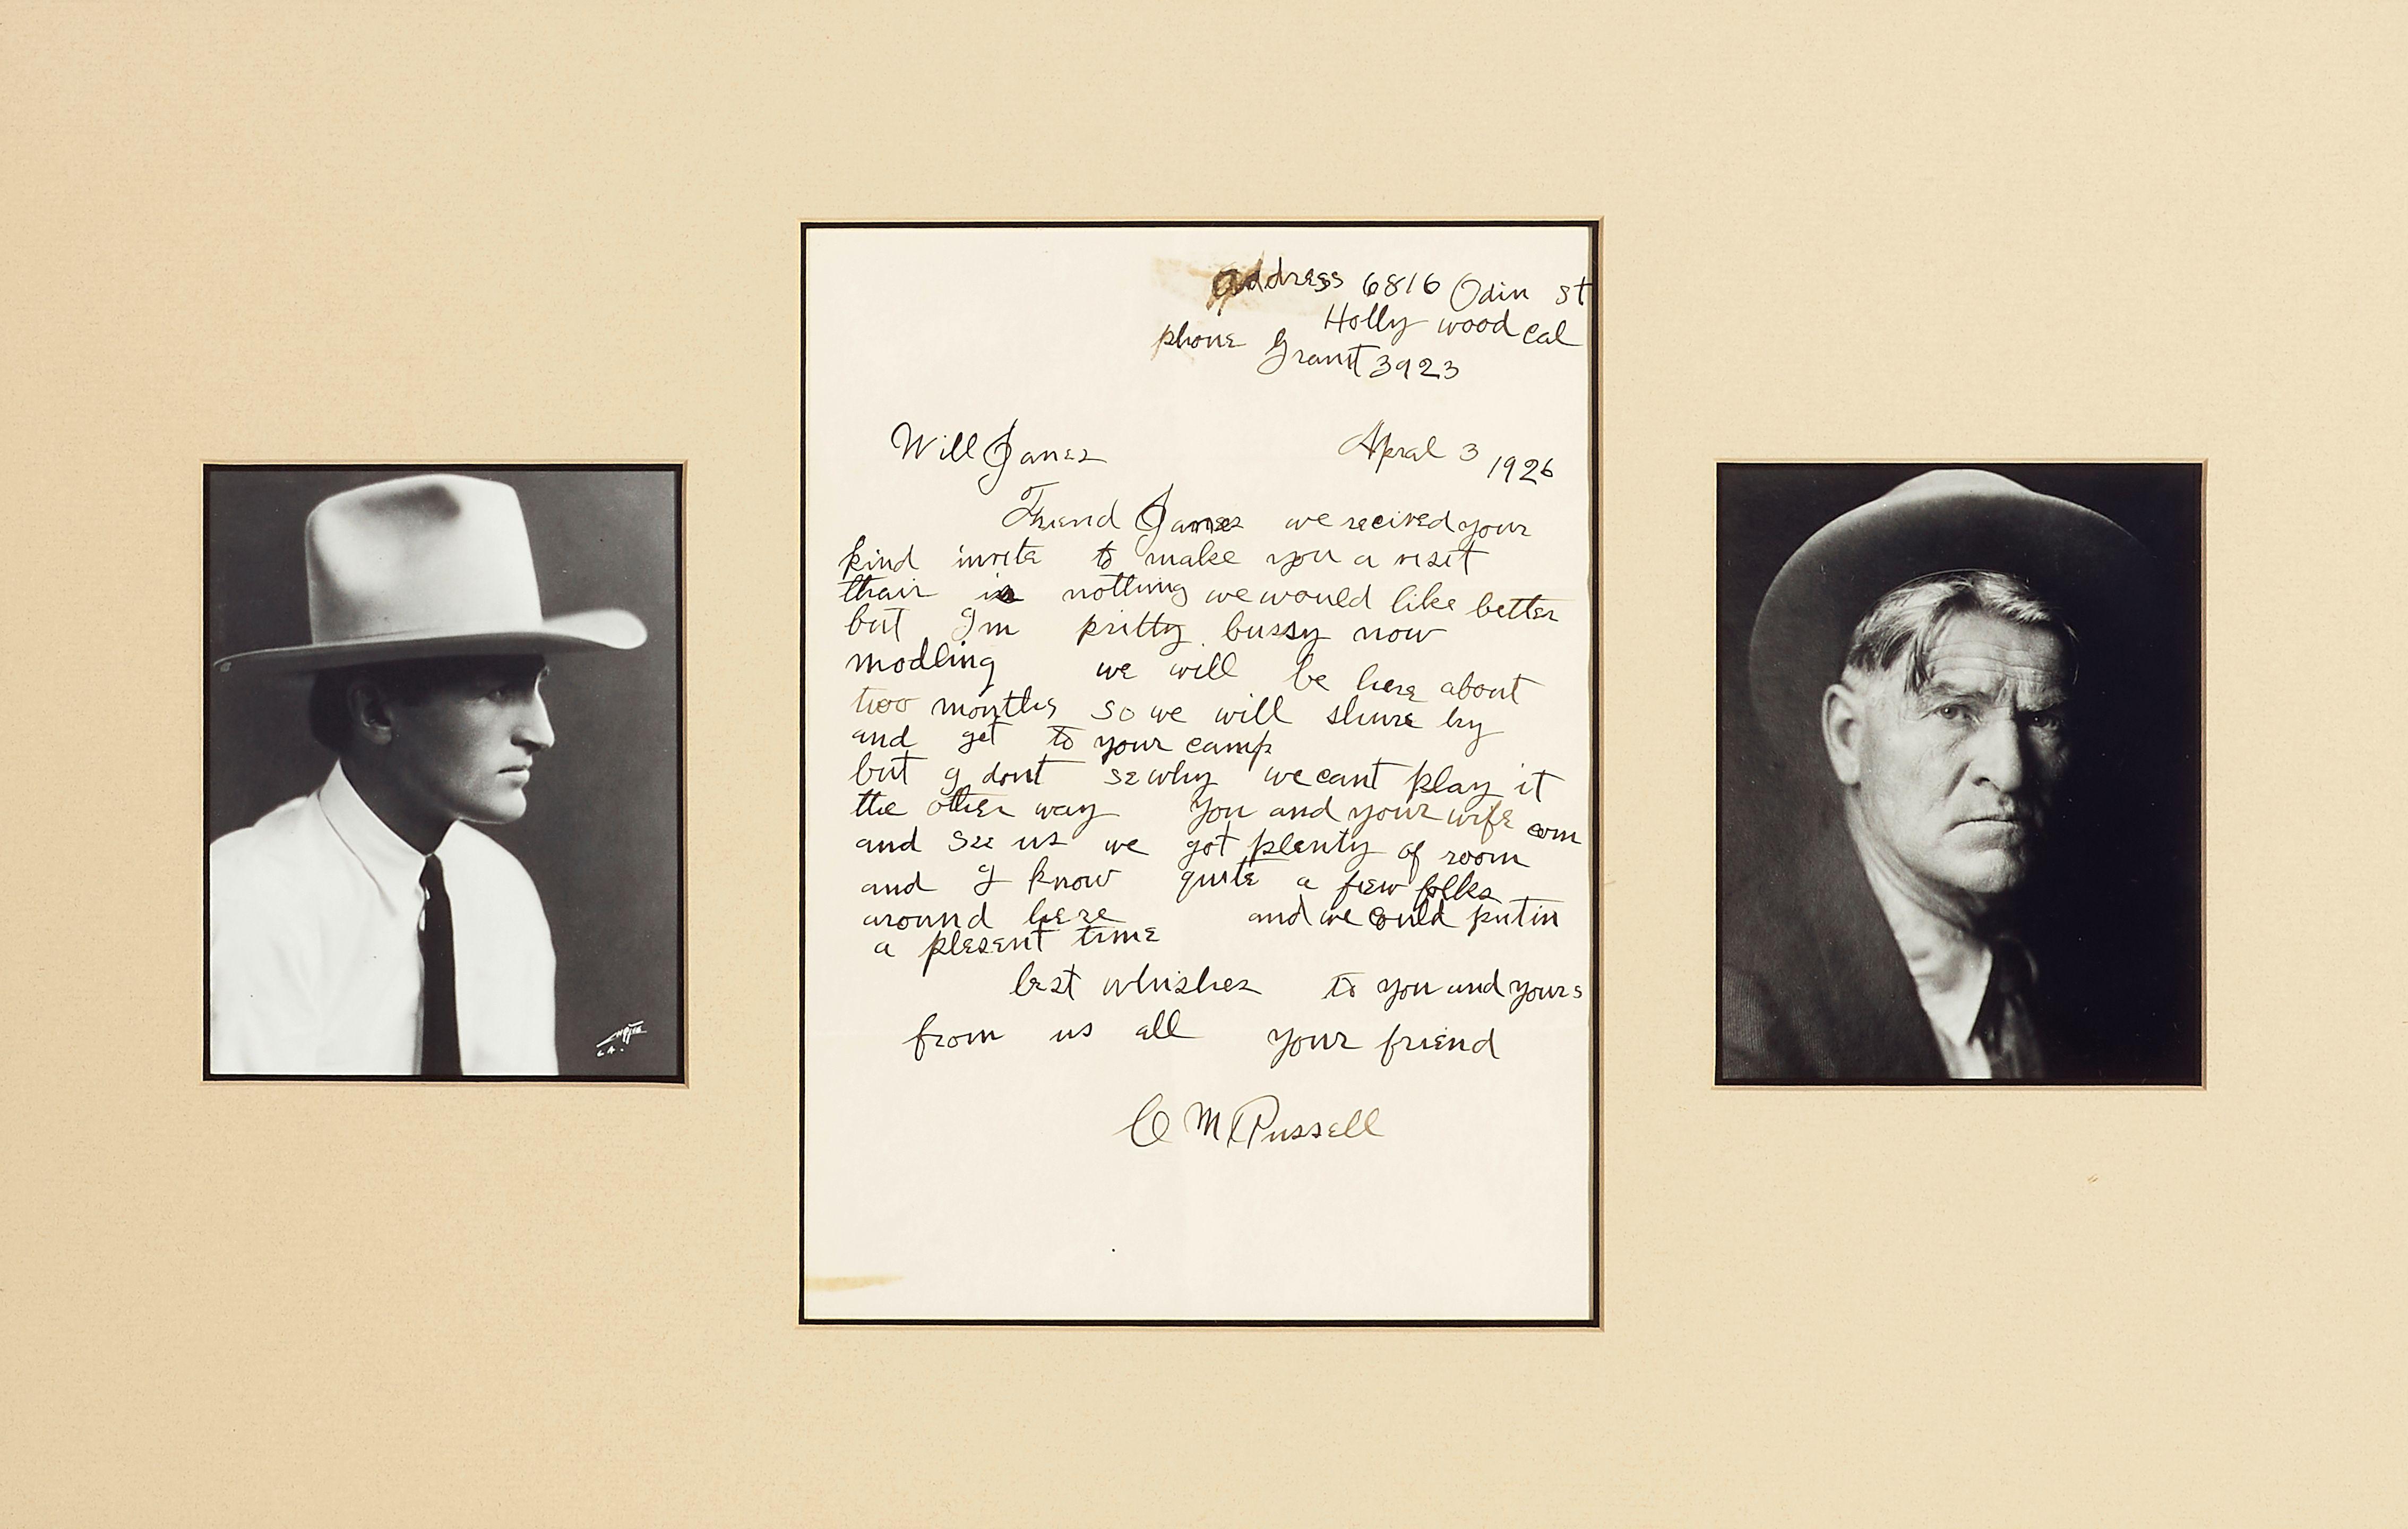 address 6816 Odin st
Holly wood Cal
phone Granit 3923
Will James
Apral 3 1926
Friend James we recived your
kind invite to make you a visit
thair is nothing we would like better
but Im pritty bussy now
modling we will be here about
two months so we will shure try
and get to your camp
but I dont se why we cant play it
the other way You and your wife com
and see us we got plenty of room
and I know quite a few folks
around here and we could put in
a plesent time
best whishes to you and yours
from us all your friend
C M Russell
L.A.